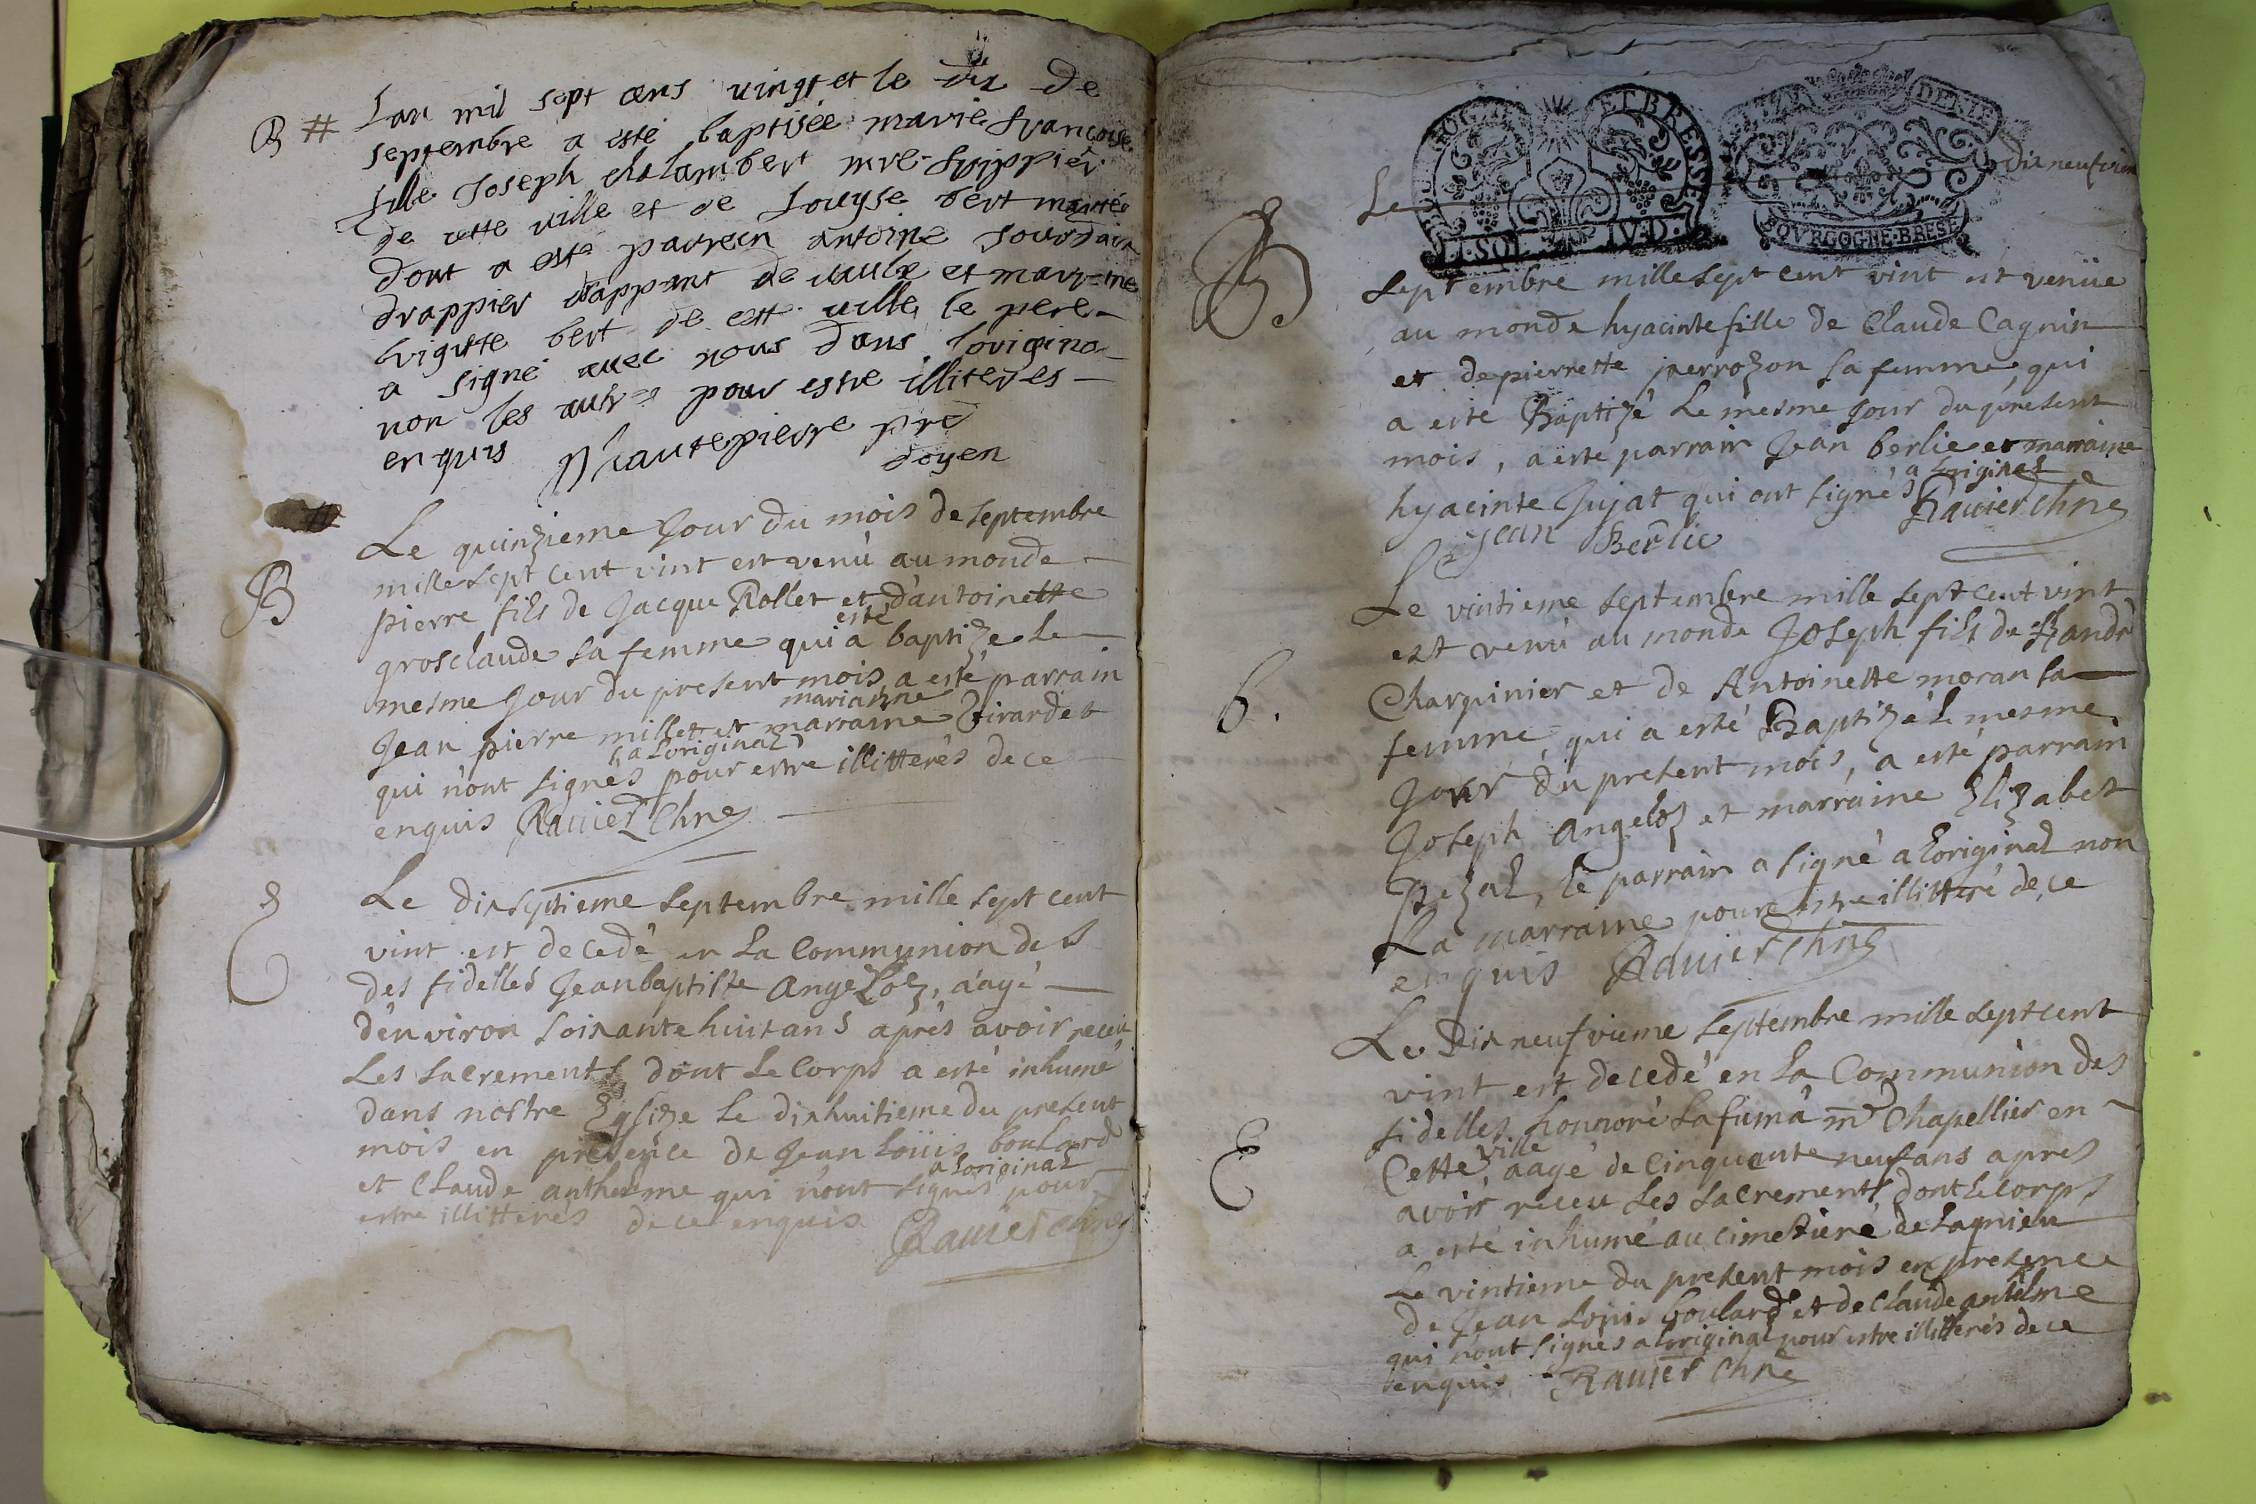 B # Lan mil sept cens vingt et le dix de
septembre a esté baptisée marie francoise
fille Joseph chalambert mre frippier
de cette ville et de Louyse bert mariée
dont a esté parrein antoine Jourdain
drappier drappant de vaulx et marr=ine
brigitte bert de cett ville le pere
a signé avec nous dans lorigina
non les autres pour estre illiteres
enquis Hautepierre pre
doyen
B
Le quinzieme Jour du mois de septembre
mille sept cent vint est venù au monde
pierre fils de Jacque Rollet et d'antoinette
grosclaude sa femme qui a esté baptizé le
mesme Jour du present mois a esté parrain
Jean pierre millet et marraine marianne Girardet
qui n'ont signés a Loriginal pour estre illitterés de ce
enquis Ravier Chne
E
Le dixseptieme septembre mille sept cent
vint est decedé en La Communion des
des fidelles Jean baptiste Angeloz, aagé
d'environ soixante huit ans aprés avoir receu
Les sacrements dont Le Corps a esté inhumé
dans nostre Eglize Le dixhuitieme du present
mois en presence de Jean Loüis boulard
et Claude anthelme qui n'ont signés a Loriginal pour
estre illitterés de ce enquis Ravier Chne
BOURGOGNE ET BRESSE
I. SOL IV. D.
BOVRGOGNE-BRESSE
Le dixneufvieme
B.
septembre mille sept cent vint est venüe
au monde hyacinte fille de Claude Cagnin
et de pierrette perrozon sa femme, qui
a esté Baptizé Le mesme Jour du present
mois, a esté parrain Jean berlie et marraine
hyacinte Jujat qui ont signés a Loriginal Ravier Chne
Jean Berlie
Le vintieme septembre mille sept cent vint
est venù au monde Joseph fils de André
B.
Charpinier et de Antoinette moran sa
femme, qui a esté Baptizé le mesme
Jour du present mois, a esté parrain
Joseph Angeloz et marraine Elizabet
pezal, le parrain a signé a Loriginal non
La marraine pour estre illitteré de ce
enquis Ravier Chne
Le Dixneufvieme septembre mille sept cent
vint est decedé en La Communion des
fidelles honnoré Lafuma mre Chapellier en
E
Cette ville aagé de Cinquante neuf ans apres
avoir receu Les sacrements dont Le Corps
a esté inhumé au cimetiere de Lagnieu
Le vintieme du present mois en presence
de Jean Louis boulard et de Claude antelme
qui n'ont signés a Loriginal pour estre illitterés de ce
enquis Ravier Chne